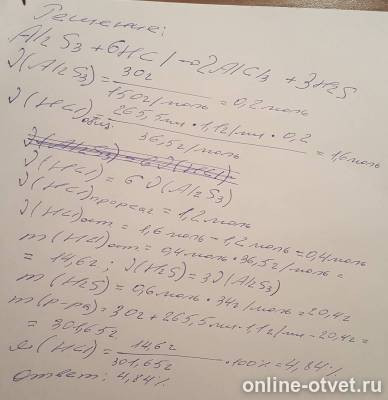 Решение:
Al2S3 + 6HCl → 2AlCl3 + 3H2S
ν(Al2S3) = 30г / 150г/моль = 0,2моль
ν(HCl)общ. = 265,5мл · 1,1г/мл · 0,2 / 36,5г/моль = 1,6моль
ν(Al2S3) = 6ν(HCl)
ν(HCl) = 6ν(Al2S3)
ν(HCl)прореаг = 1,2моль
ν(HCl)ост = 1,6моль - 1,2моль = 0,4моль
m(HCl)ост = 0,4моль · 36,5г/моль =
= 14,6г; ν(H2S) = 3ν(Al2S3)
m(H2S) = 0,6моль · 34г/моль = 20,4г
m(р-ра) = 30г + 265,5мл · 1,1г/мл - 20,4г =
= 301,65г
ω(HCl) = 14,6г / 301,65г · 100% = 4,84%
Ответ: 4,84%
online-otvet.ru